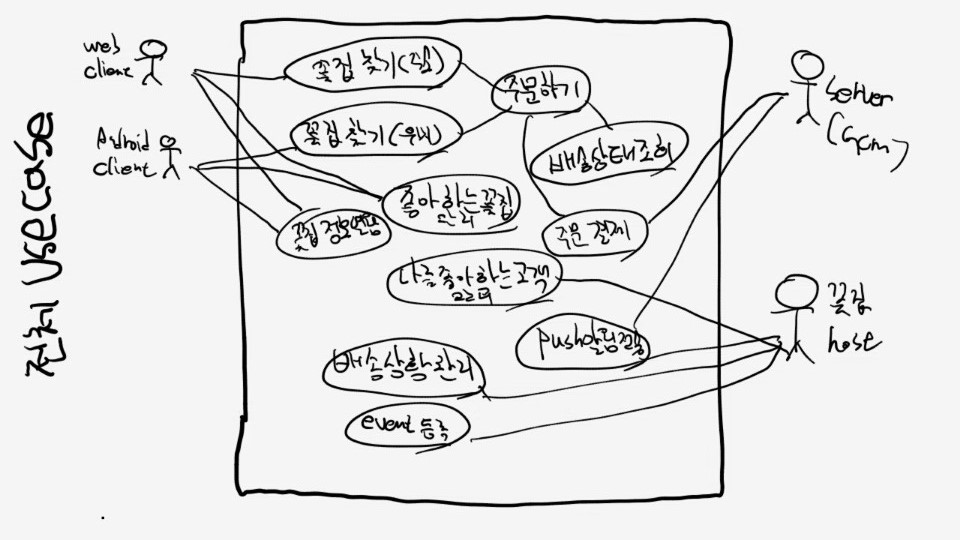 전체 Usecase
web
client
Android
client
꽃집 찾기(
꽃집 찾기(
주문하기
배송상태조회
좋아하는꽃집
관리
꽃집 정보열람
주문 결제
나를좋아하는고객
관리
push알림전송
배송상황관리
event 등록
Server
(GCM)
꽃집
host